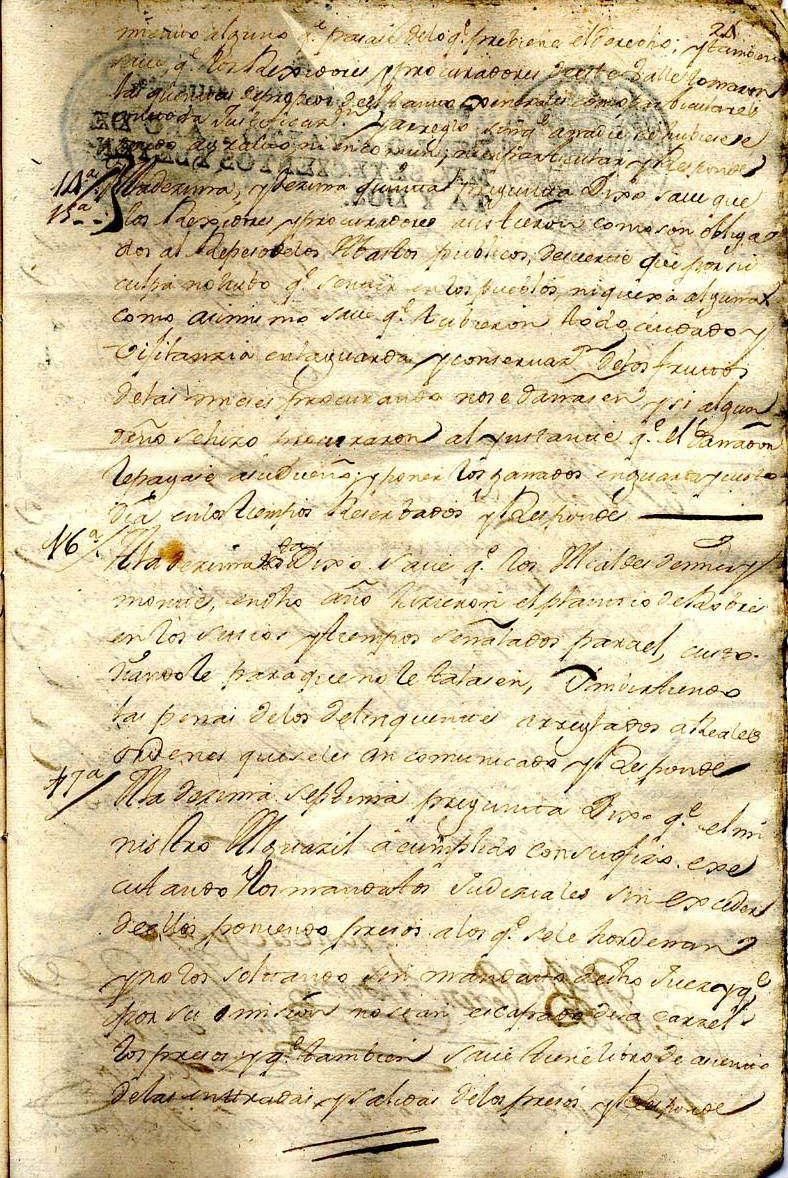 21
alguno q.e pasase de lo q.e prebiene el derecho, y tambien
save q.e los Rexidores y procuradores de este Valle tomaron
las quentas de propios
Justificaz.on y arreglo sin q.e a nadie se hubiese
agravio ni en comun, ni en particular y Responde
14.a A la dezima, y dezima quinta Pregunta Dixo save que
15.a los Rexidores y procuradores asistieron como son obliga
dos al Repeso de los Abastos publicos, de suerte que por su
culpa no hubo q.e sentir en los pueblos, ni quexa alguna
como asimismo save q.e tubieron todo cuidado y
Vijilanzia en la guarda y conservaz.on de los frutos
de las mieses procurando no se dañasen y si algun
daño se hizo procuraron al ynstante q.e el dañador
le pagase a su Dueño, y poner los ganados en guarda y custo
dia en los tiempos Reserbados y Responde
16.a A la dezima Dixo save q.e los Alcaldes de mes y
monte, en dho año hizieron el plantio de Robre
en los sitios y tiempos señalados para el, custo-
diandole para que no le talasen, Ymbirtiendo
las penas de los delinquentes arreglados a Reales
ordenes que se les an comunicado y Responde
17.a A la dezima septima pregunta Dixo q.e el mi
nistro Alguazil a cumplido con su ofizio exe
cutando los mandatos Judiciales sin exceder
de ellos poniendo presos a los q.e se le hordenan
y no los soltando sin mandato de dho Juez y q.e
por su omision no se an escapado de la carzel
los presos y q.e tambien save tiene libro de asiento
de las entradas y salidas de los presos y Responde